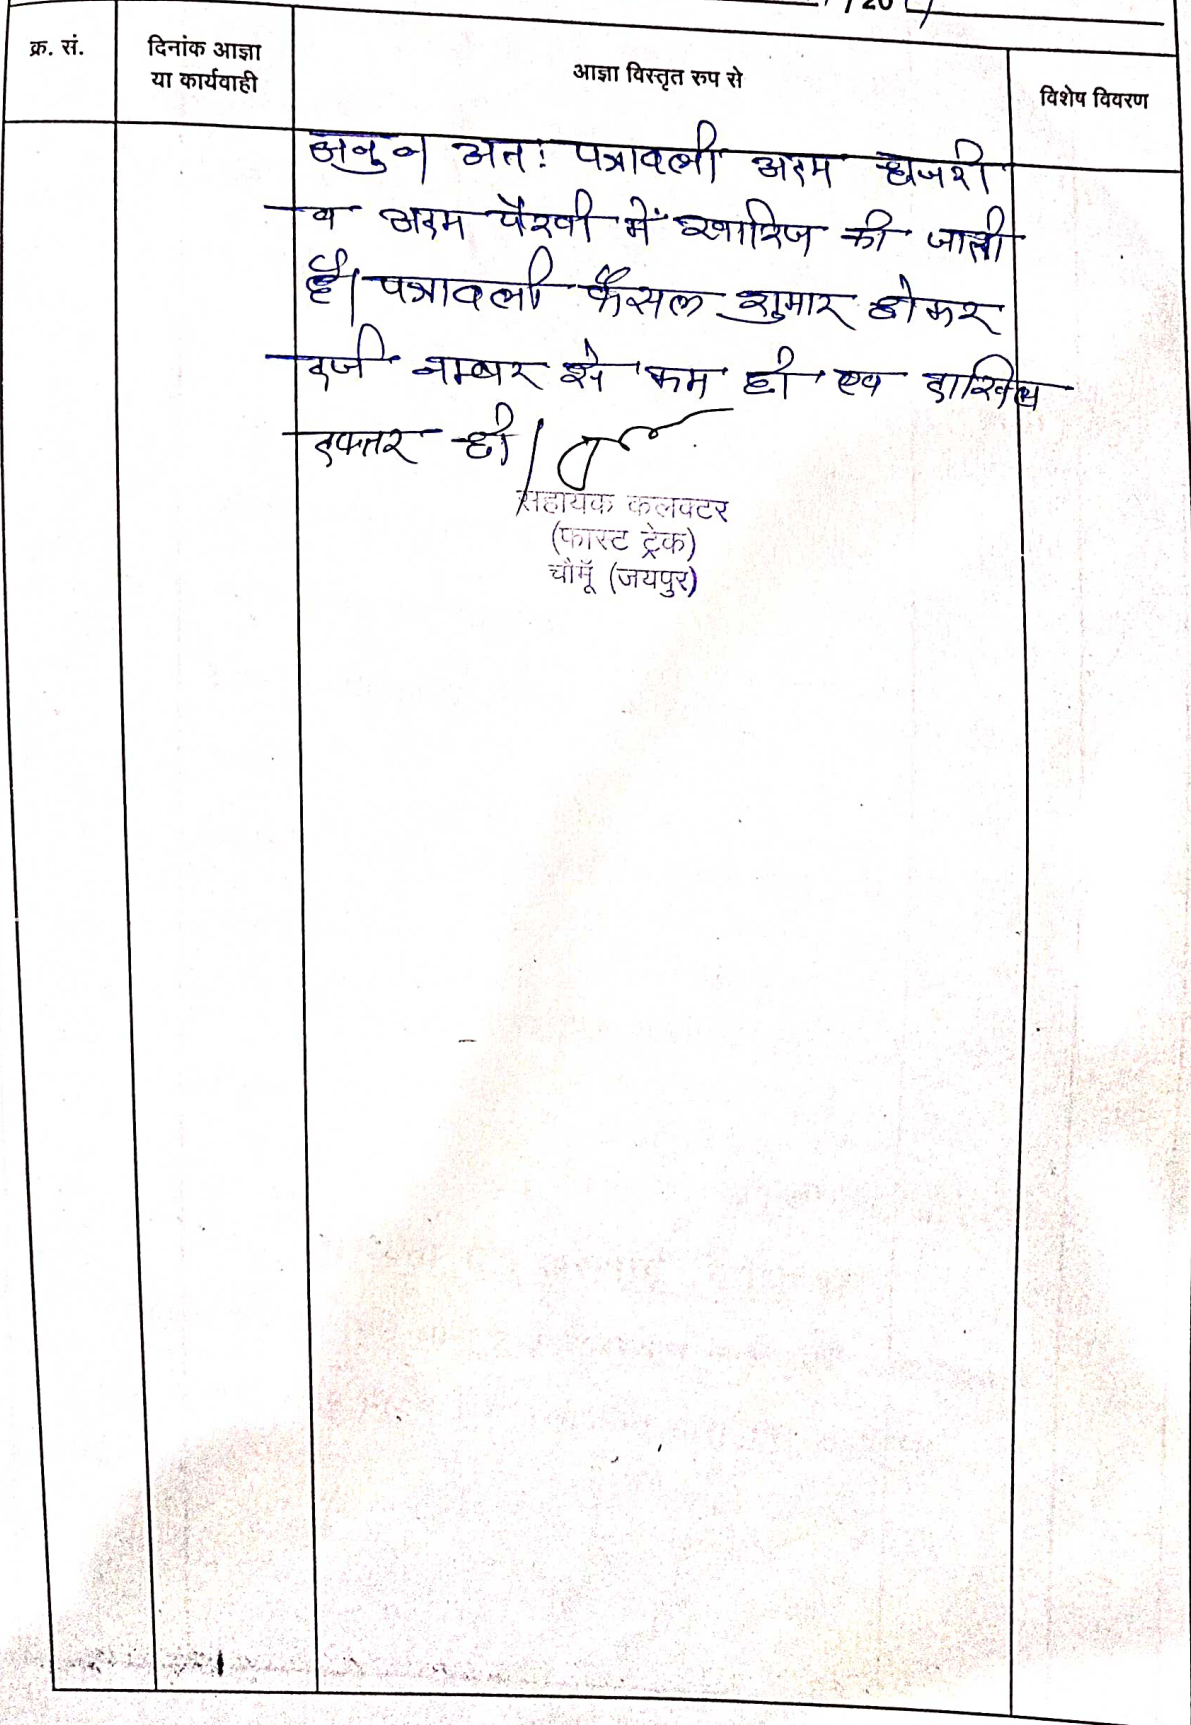 /20
क्र. सं.
दिनांक आज्ञा
या कार्यवाही
आज्ञा विस्तृत रुप से
विशेष विवरण
अतः पत्रावली अदम हाजरी
व अदम पैरवी में खारिज की जाती
है। पत्रावली फैसल शुमार होकर
दर्ज नम्बर से कम हो एव दाखिल
दफ्तर हो।
सहायक कलक्टर
(फास्ट ट्रेक)
चौमूँ (जयपुर)